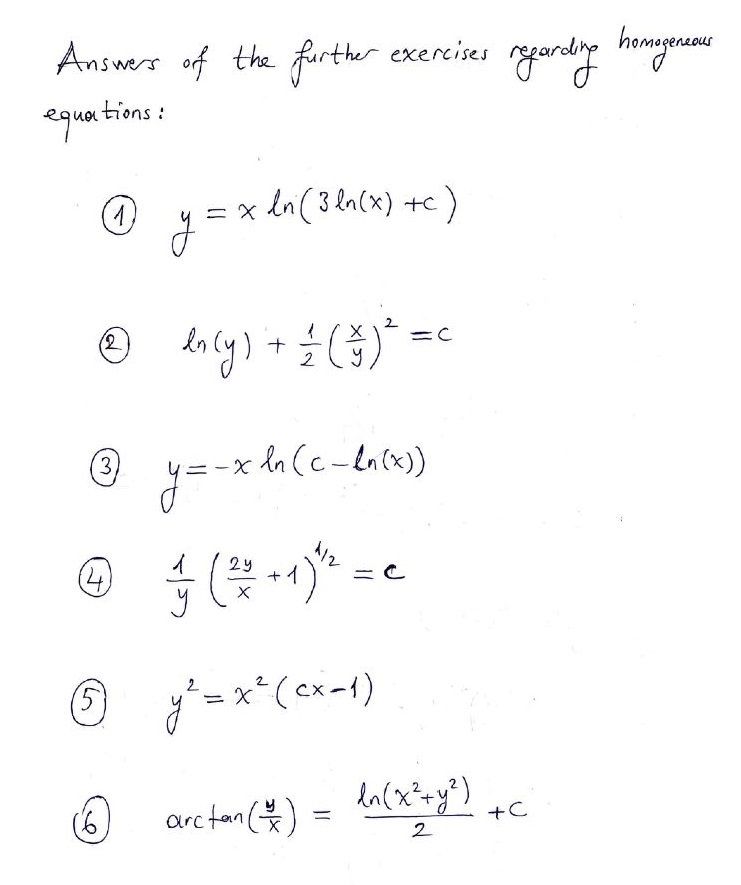 Answers of the further exercises regarding homogeneous
equations:
① y = x ln(3 ln(x) + c)
② ln(y) + 1/2 (x/y)² = c
③ y = -x ln(c - ln(x))
④ 1/y (2y/x + 1)^1/2 = c
⑤ y² = x² (cx - 1)
⑥ arctan(y/x) = ln(x²+y²)/2 + c